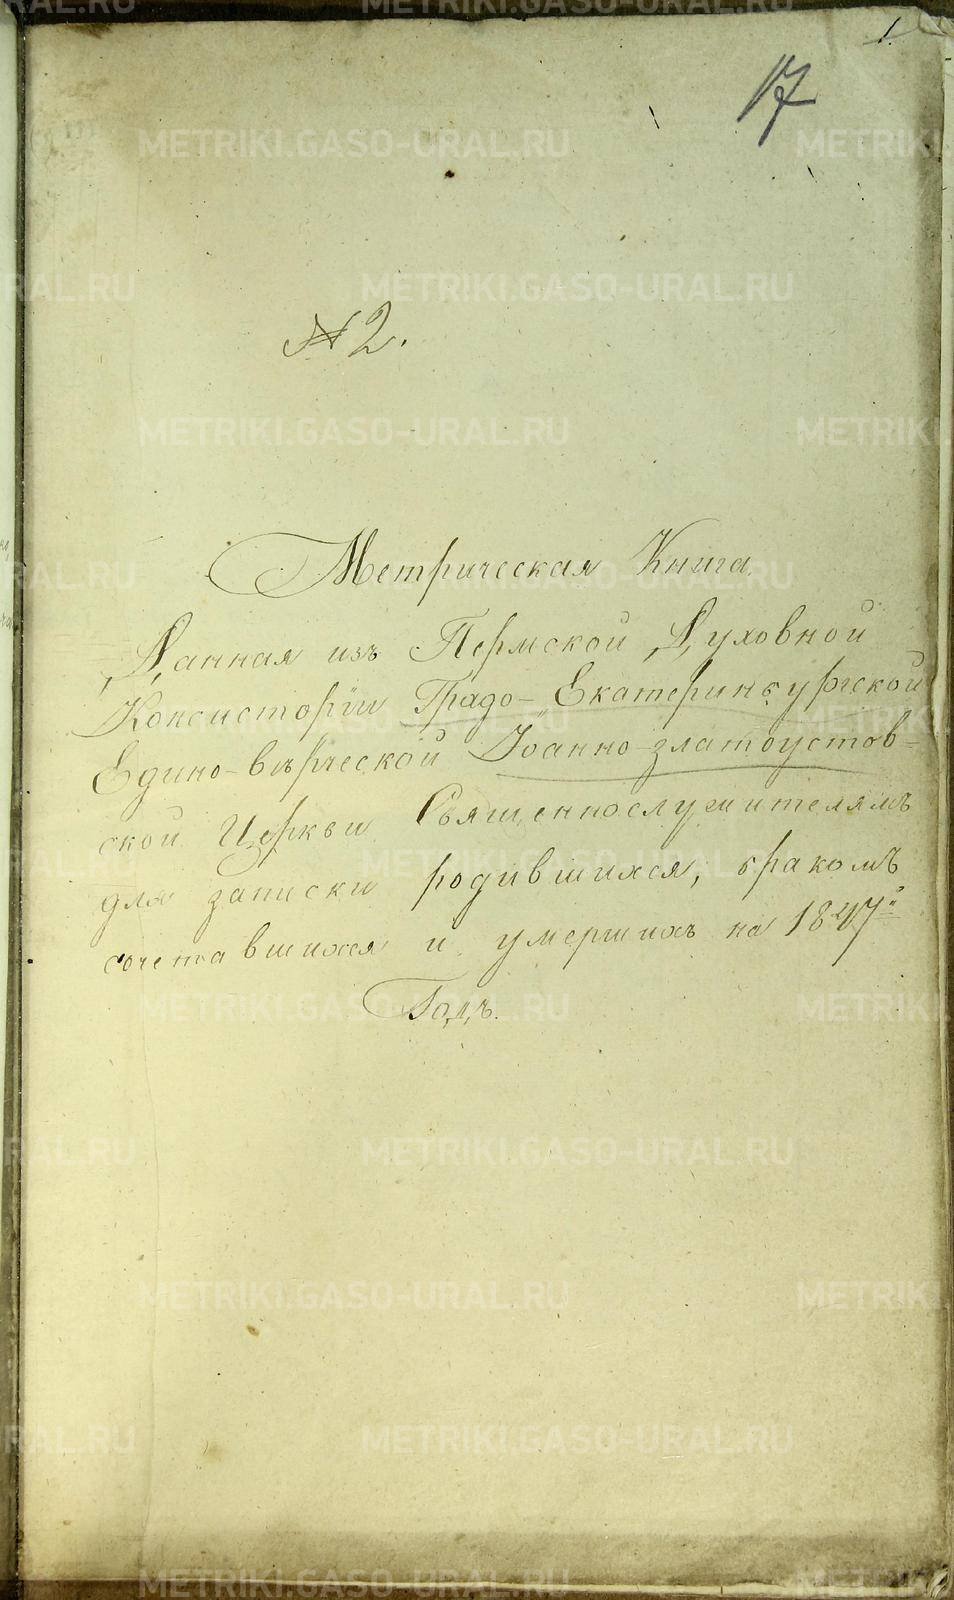 1.
17
№ 2.
Метрическая Книга
Данная изъ Пермской Духовной
Консисторіи Градо-Екатеринбургской
Едино-вѣрческой Іоанно-златоустов-
ской Церкви Священнослужителямъ
для записки родившихся, бракомъ
сочетавшихся и умершихъ на 1847й
Годъ.
METRIKI.GASO-URAL.RU